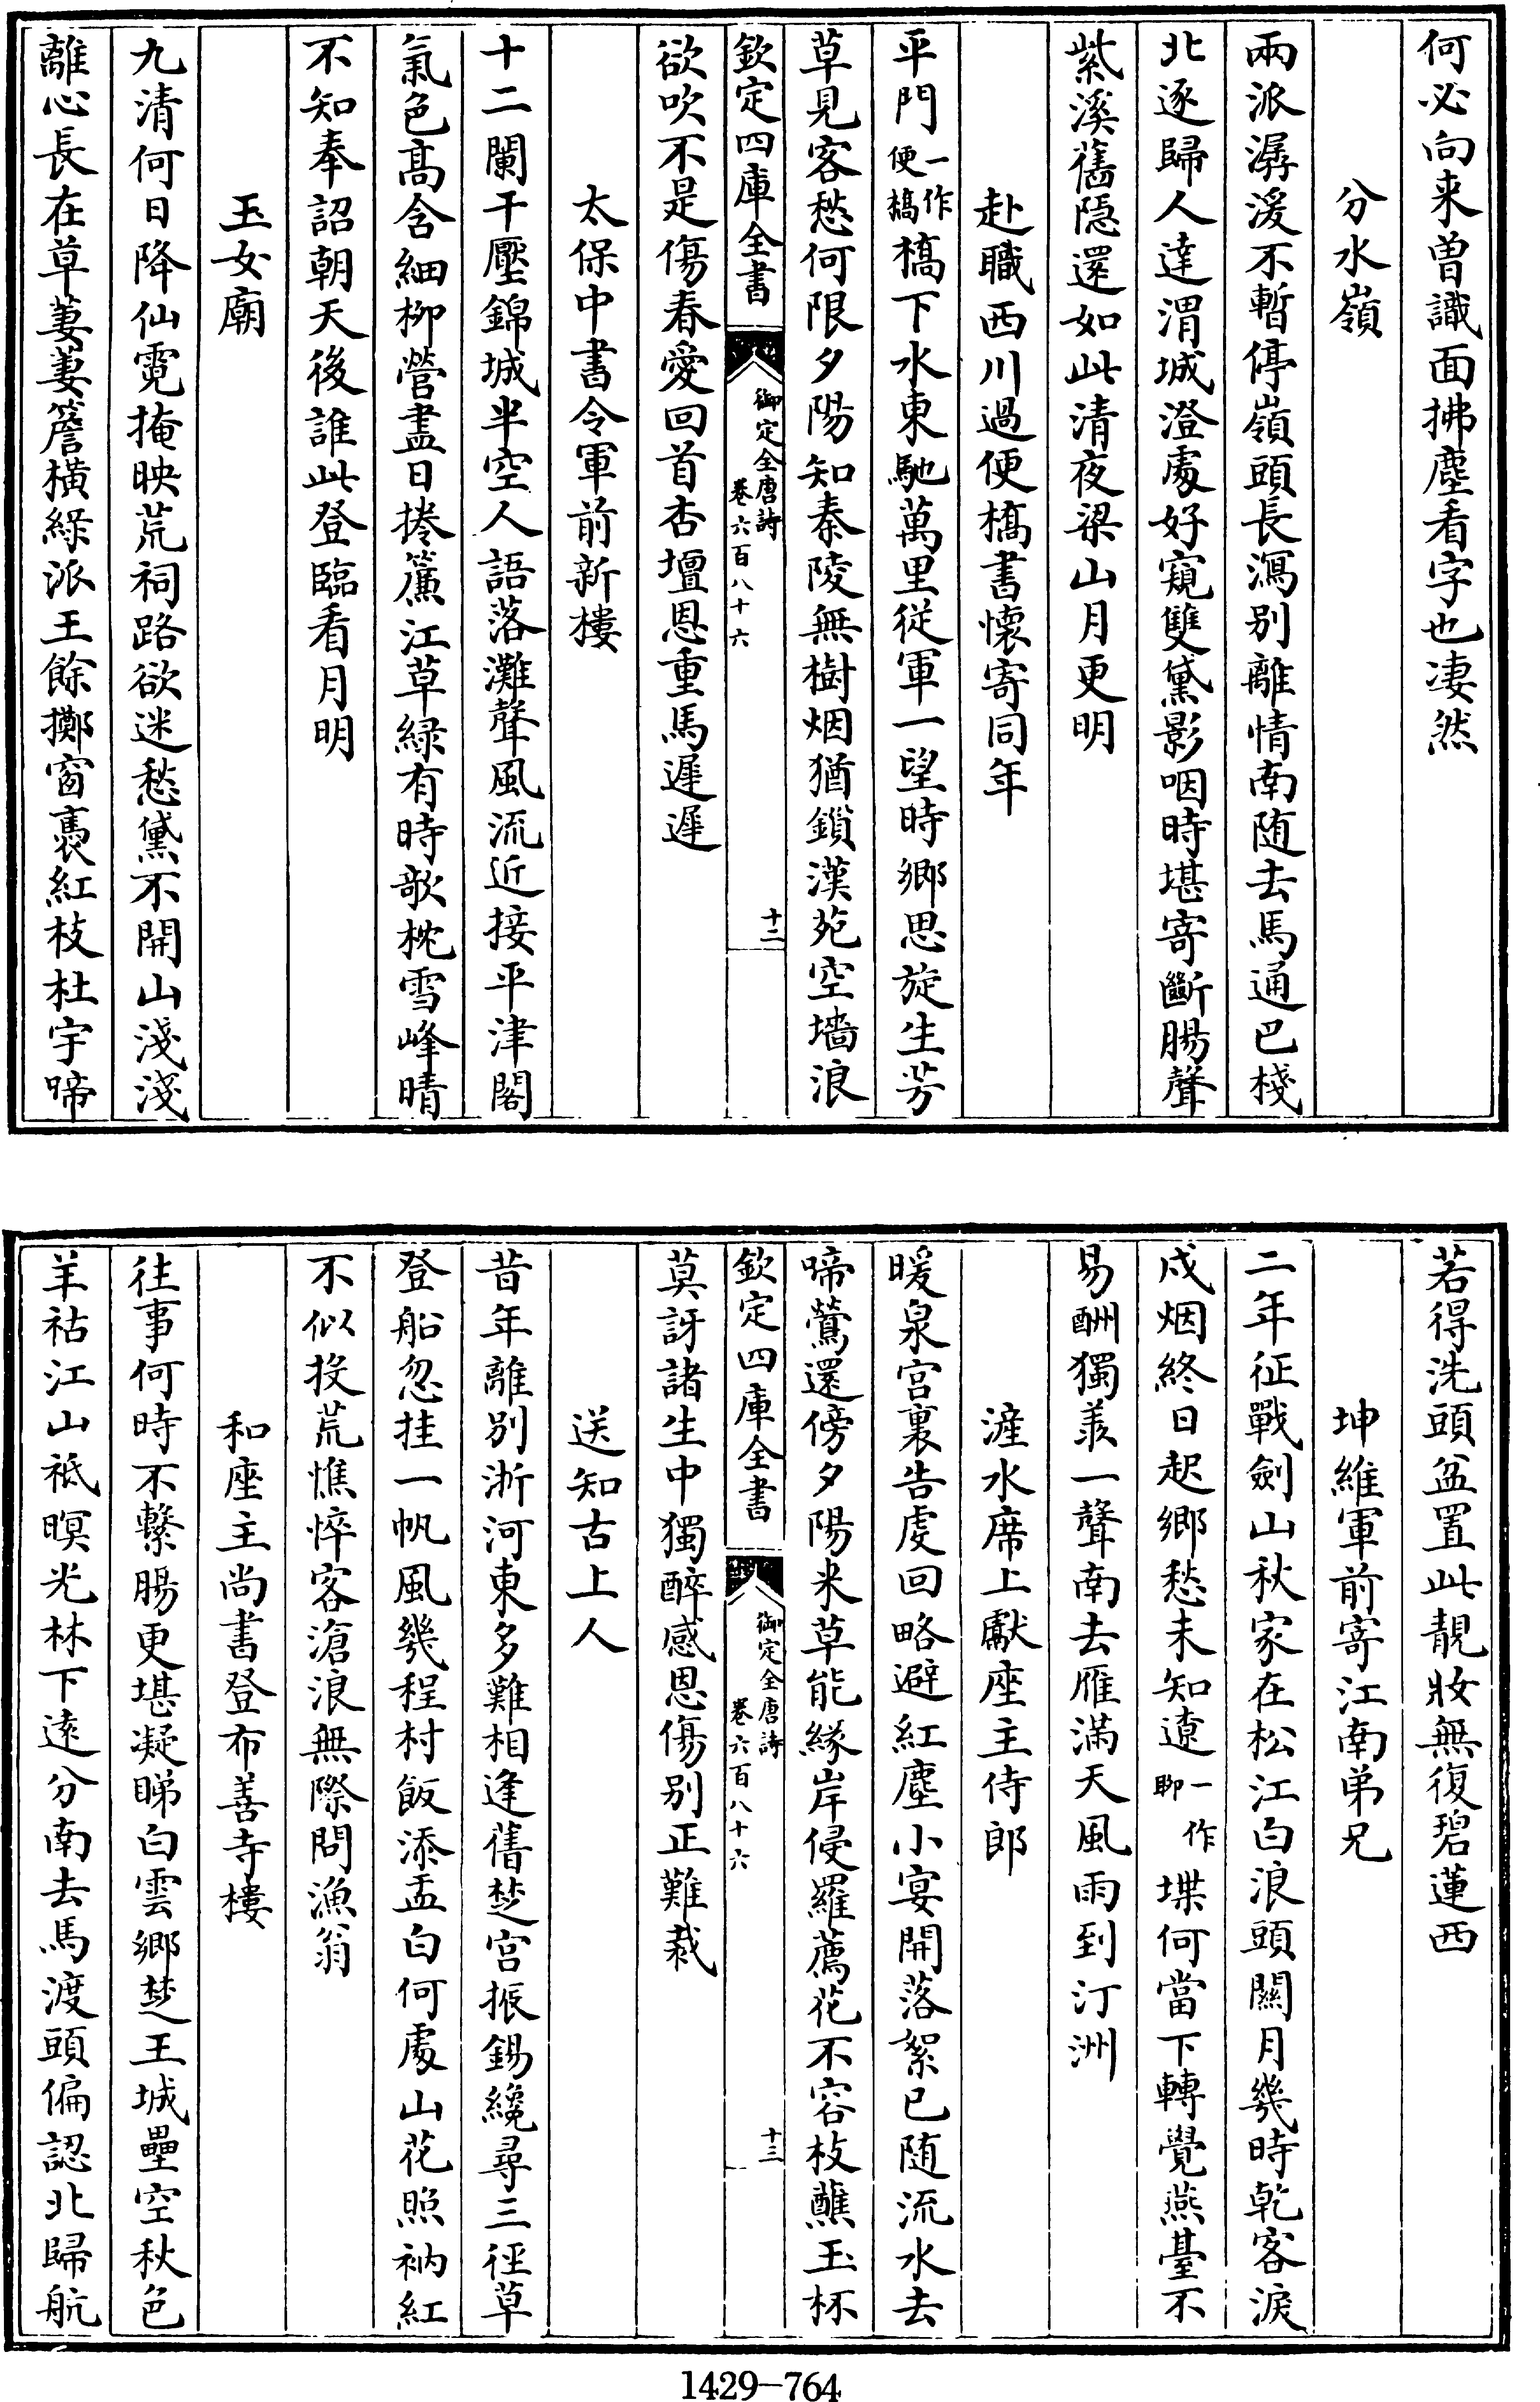 何必向来曽識面拂塵看字也凄然
分水嶺
兩派潺湲不暫停嶺頭長瀉别離情南随去馬通巴棧
北逐歸人達渭城澄處好窺雙黛影咽時堪寄斷腸聲
紫溪舊隠還如此清夜梁山月更明
赴職西川過便橋書懷寄同年
平門一作便橋橋下水東馳萬里從軍一望時鄉思旋生芳
草見客愁何限夕陽知秦陵無樹烟猶鎖漢苑空墻浪
欽定四庫全書
御定全唐詩
卷六百八十六
十二
欲吹不是傷春愛回首杏壇恩重馬遲遲
太保中書令軍前新樓
十二闌干壓錦城半空人語落灘聲風流近接平津閣
氣色髙含細柳營盡日捲簾江草緑有時欹枕雪峰晴
不知奉詔朝天後誰此登臨看月明
玉女廟
九清何日降仙霓掩映荒祠路欲迷愁黛不開山淺淺
離心長在草萋萋簷橫綠派王餘擲窗裛紅枝杜宇啼
若得洗頭盆置此靚妝無復碧蓮西
坤維軍前寄江南弟兄
二年征戰劍山秋家在松江白浪頭關月幾時乾客淚
戍烟終日起鄉愁未知遼一作聊堞何當下轉覺燕臺不
易酬獨羨一聲南去雁滿天風雨到汀洲
滻水席上獻座主侍郎
暖泉宫裏告虔回略避紅塵小宴開落絮已随流水去
啼鶯還傍夕陽来草能緣岸侵羅薦花不容枝蘸玉杯
欽定四庫全書
御定全唐詩
卷六百八十六
十三
莫訝諸生中獨醉感恩傷别正難裁
送知古上人
昔年離别浙河東多難相逢舊楚宫振錫纔尋三徑草
登船忽挂一帆風幾程村飯添盂白何處山花照衲紅
不似投荒憔悴客滄浪無際問漁翁
和座主尚書登布善寺樓
往事何時不繫腸更堪凝睇白雲鄉楚王城壘空秋色
羊祜江山祗暝光林下逺分南去馬渡頭偏認北歸航
1429-764